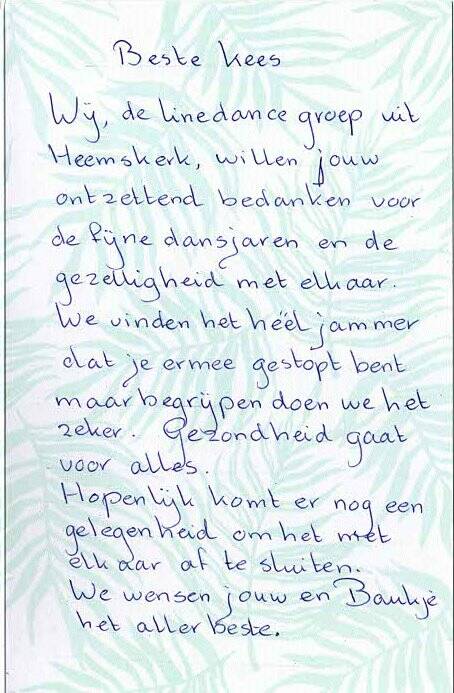 Beste Kees
Wij, de linedance groep uit
Heemskerk, willen jouw
ontzettend bedanken voor
de fijne dansjaren en de
gezelligheid met elkaar.
We vinden het héél jammer
dat je ermee gestopt bent
maar begrijpen doen we het
zeker. Gezondheid gaat
voor alles.
Hopenlijk komt er nog een
gelegenheid om het met
elkaar af te sluiten.
We wensen jouw en Baukje
het allerbeste.